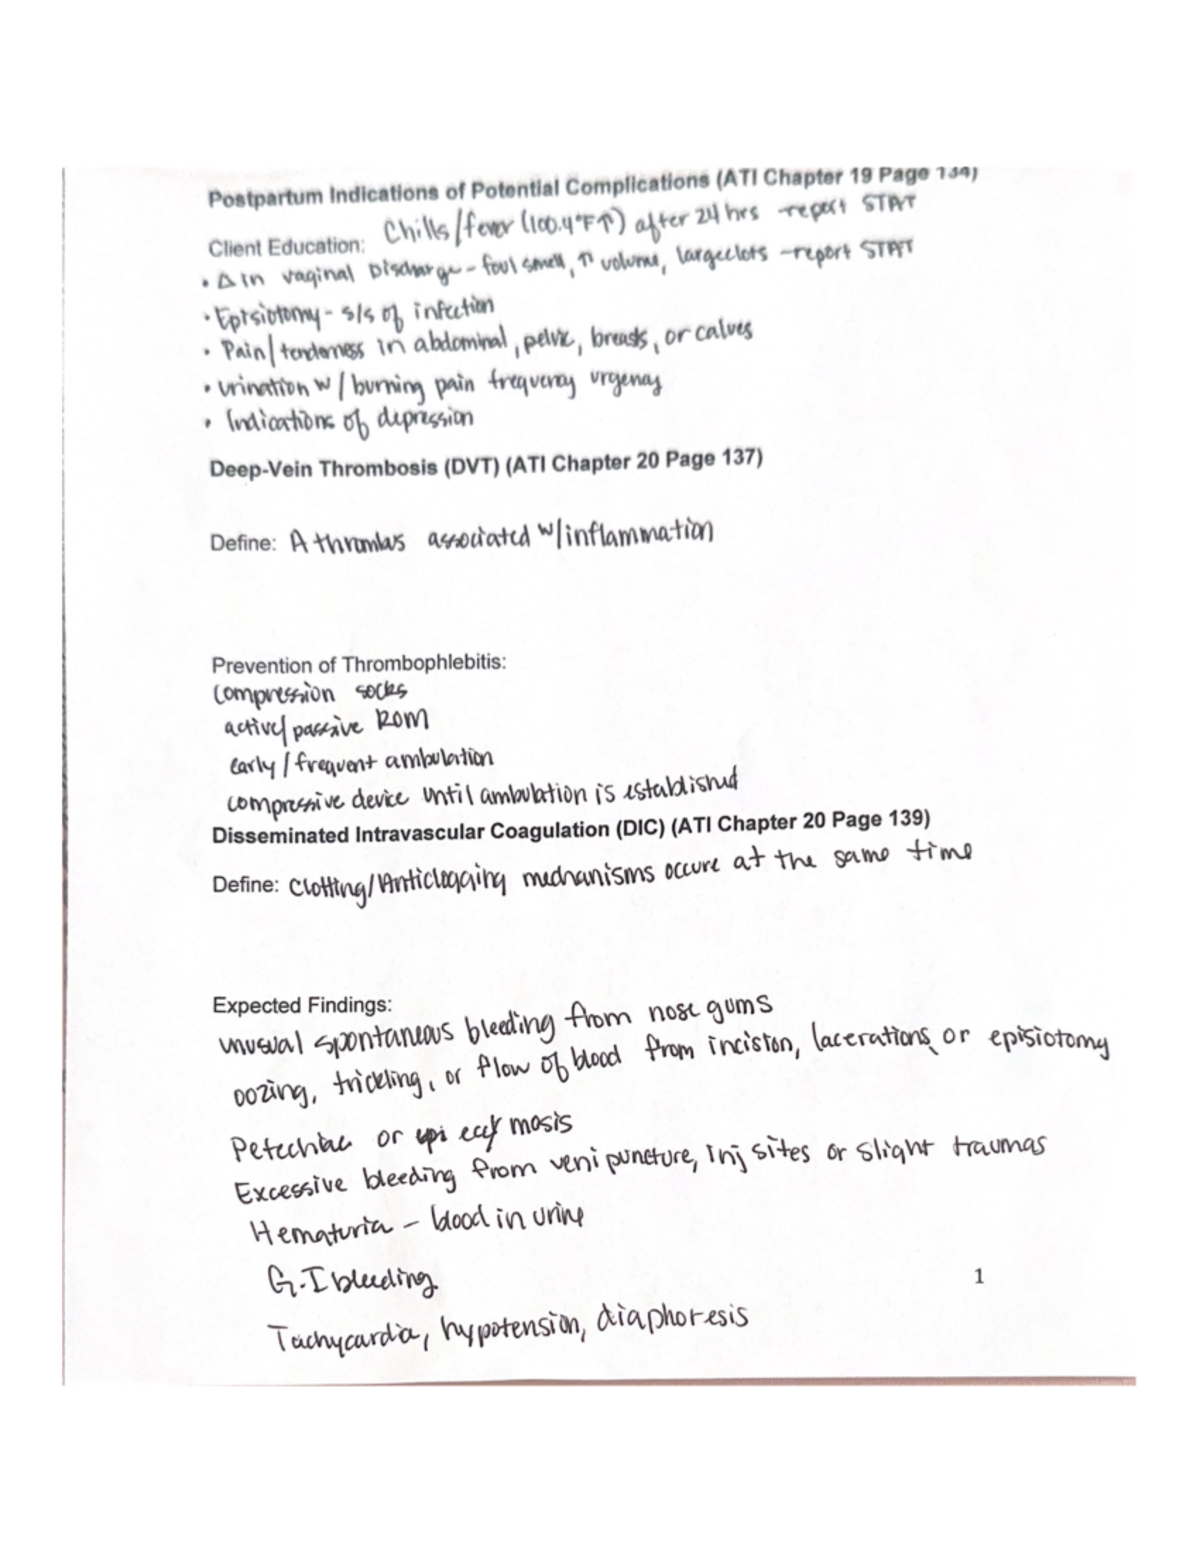 Postpartum Indications of Potential Complications (ATI Chapter 19 Page 134)
Client Education: Chills/fever (100.4°F↑) after 24 hrs -report STAT
• Δ in vaginal Discharge - foul smell, ↑ volume, large clots -report STAT
• Episiotomy - s/s of infection
• Pain/tenderness in abdominal, pelvic, breasts, or calves
• urination w/ burning pain frequency urgency
• Indications of depression
Deep-Vein Thrombosis (DVT) (ATI Chapter 20 Page 137)
Define: A thrombus associated w/inflammation
Prevention of Thrombophlebitis:
compression socks
active/passive ROM
early/frequent ambulation
compressive device until ambulation is established
Disseminated Intravascular Coagulation (DIC) (ATI Chapter 20 Page 139)
Define: Clotting/Anticlogging mechanisms occure at the same time
Expected Findings:
unusual spontaneous bleeding from nose gums
oozing, trickling, or flow of blood from incision, lacerations, or episiotomy
Petechiae or ecchymosis
Excessive bleeding from venipuncture, inj sites or slight traumas
Hematuria - blood in urine
G.I bleeding
1
Tachycardia, hypotension, diaphoresis